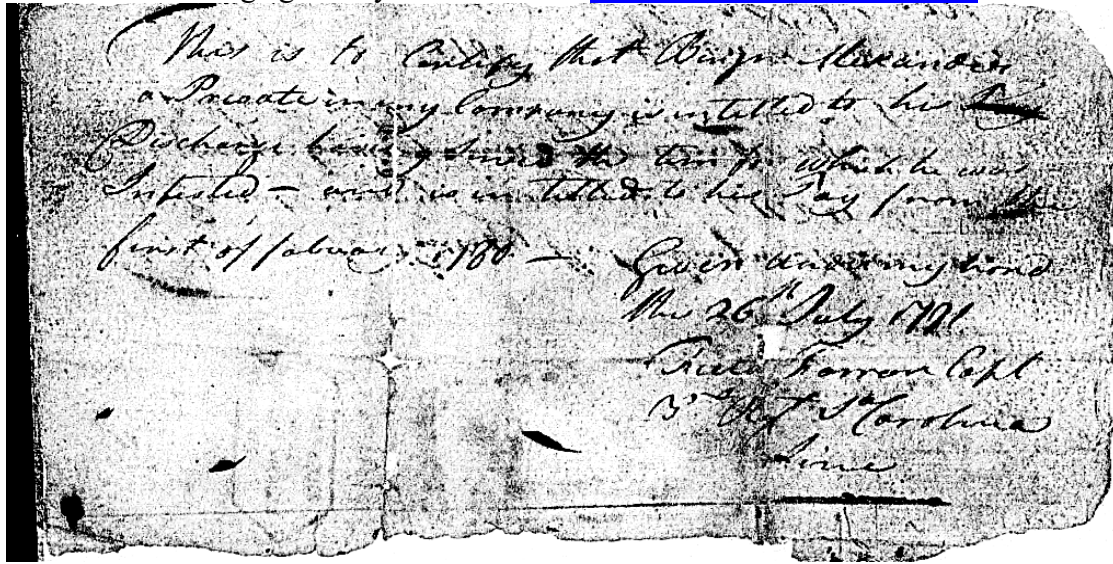 This is to Certify that Alexander
a Private in my Company is intitled to his
Discharge having Served the term for which he was
Inlisted – and is intitled to his Pay from the
first of febuary 1780 –
Given under my hand
the 26th July 1791
Field Farrar Capt
3rd Regt So Carolina
Line